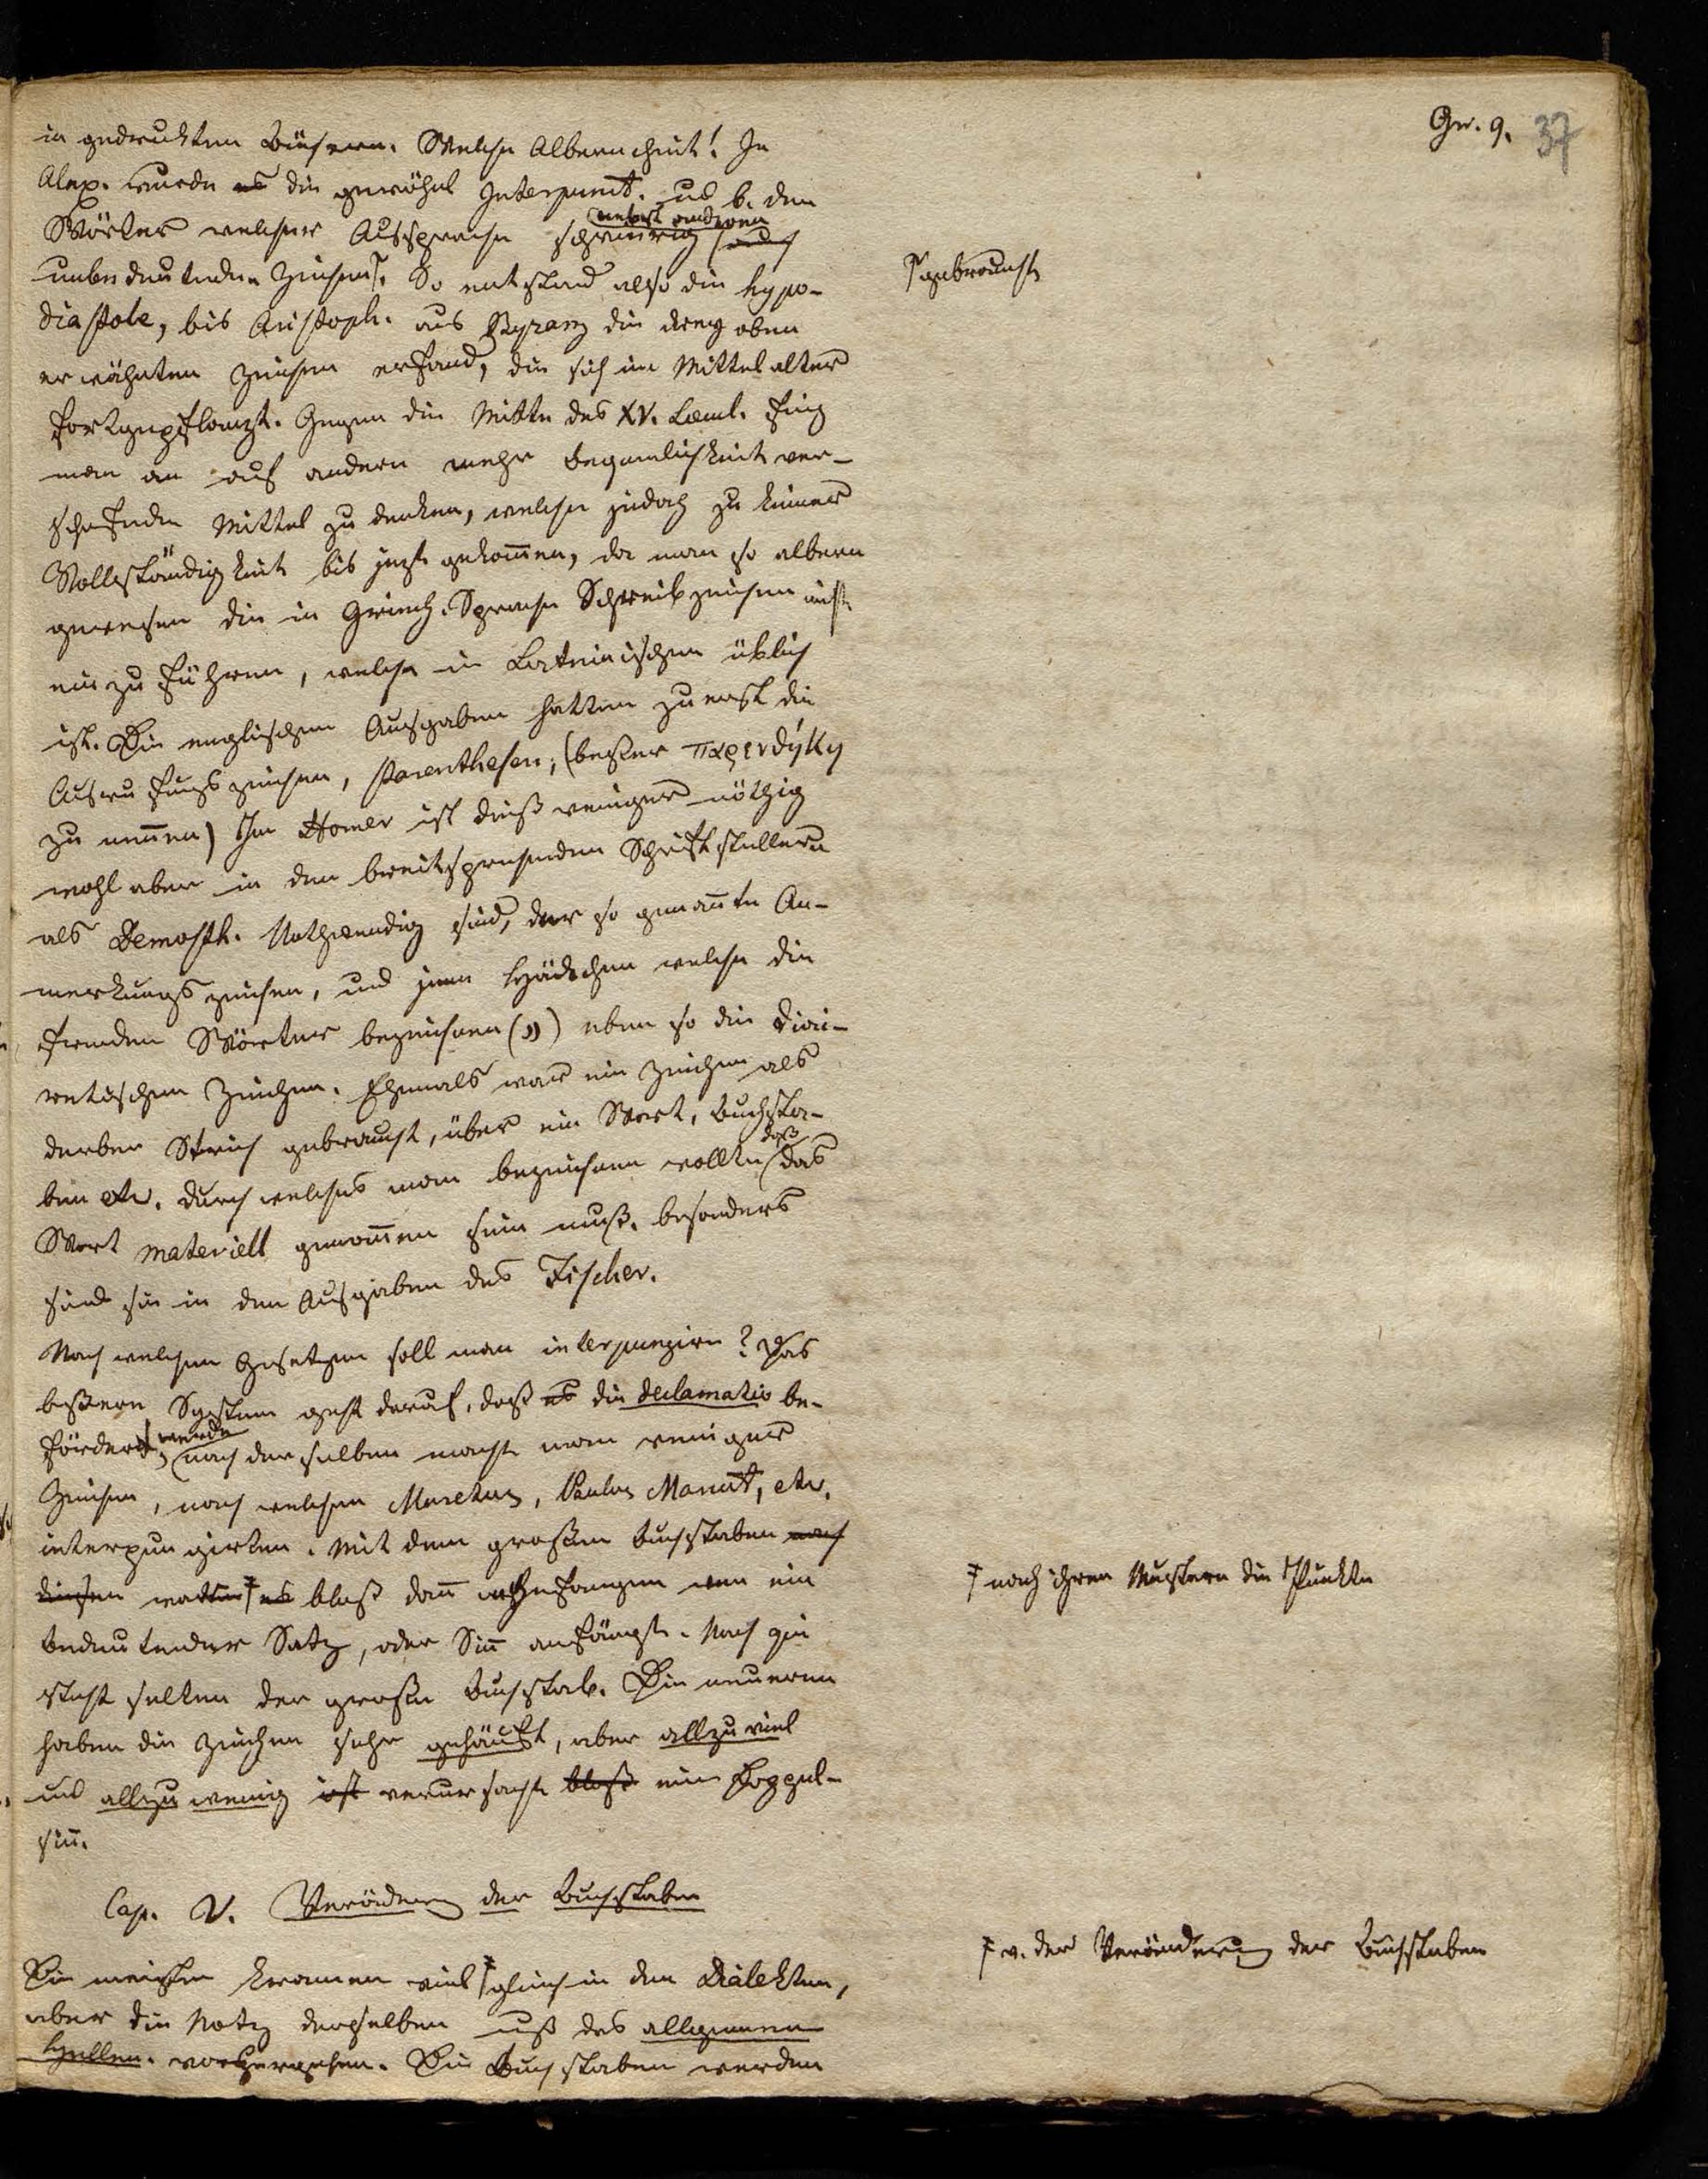 Gr. 9. 37
in gedruckten Büchern. Welche Albernheit! In
Alex. wurde es die gewöhnl Interpunct. und b. den
Wörter welcher Aussprache schwierig nebst anderen
unbedeutenden Zeichen. So entstand also die hypo-
diastole, bis Aristoph. aus Byzanz die drey oben
erwähnten Zeichen erfand, die sich im Mittelalter
fortgepflanzt. Gegen die Mitte des XV. Saecul. fing
man an auf andere mehr Bequemlichkeit ver-
schafende Mittel zu denken, welche jedoch zu keiner
Vollständigkeit bis jezt gekommen, da man so albern
gewesen die in Griech. Sprache Schreibzeichen nicht
einzuführen, welche in Lateinischen üblich
ist. Die englischen Ausgaben hatten zuerst die
Ausrufungszeichen, Parenthesen, (beßer παρενθήκη
zu nennen) Im Homer ist dieß weniger nöthig
wohl aber in den breitsprechenden Schriftstellern
als Demosth. Nothwendig sind, der so genannte An-
merkungszeichen, und jene Häckchen welche die
fremden Wörter bezeichnen („) eben so die diai-
retischen Zeichen. Ehemals war ein Zeichen als
derber Strich gebraucht, über ein Wort, Buchsta-
ben etc. durch welches man bezeichnen wollte daß das
Wort materiell genommen sein muß. besonders
sind sie in den Ausgaben des Fischer.
Nach welchen Gesetzen soll man interpungiren? Das
beßere System geht darauf, daß es die declamatio be-
fördert werde, nach derselben macht man weniger
Zeichen, nach welchen Muretus, Paulus Manut, etc.
interpungirten. Mit dem großen Buchstaben nach
diesen es bloß dann angefangen wen ein
bedeutender Satz, oder Sinn anfängt. Nach
steht selten der große Buchstab. Die neueren
haben die Zeichen sehr gehäuft, aber allzuviel
und allzu wenig ist verursacht bloß ein Doppel-
sinn.
Cap. V. Veränderung der Buchstaben
Die meisten kramen viel gleich in den Dialekten,
aber die Notiz derselben muß des allgemeinen
Hellen. vorhergehen. Die Buchstaben werden
gebraucht
nach ihren Mustern die Punkte
v. der Veränderung der Buchstaben